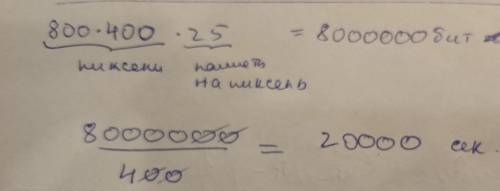 800·400 · 25 = 8000000 бит
пиксели память
на пиксель
8000000 / 400 = 20000 сек.